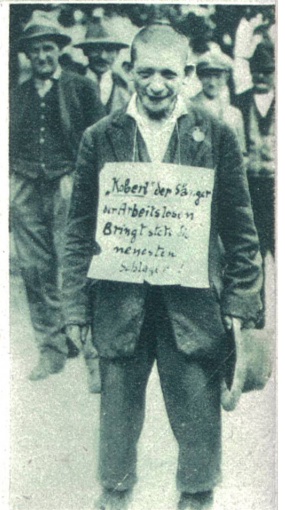 „Robert" der Sänger
der Arbeitslosen
Bringt stets die
neuesten
Schlager!